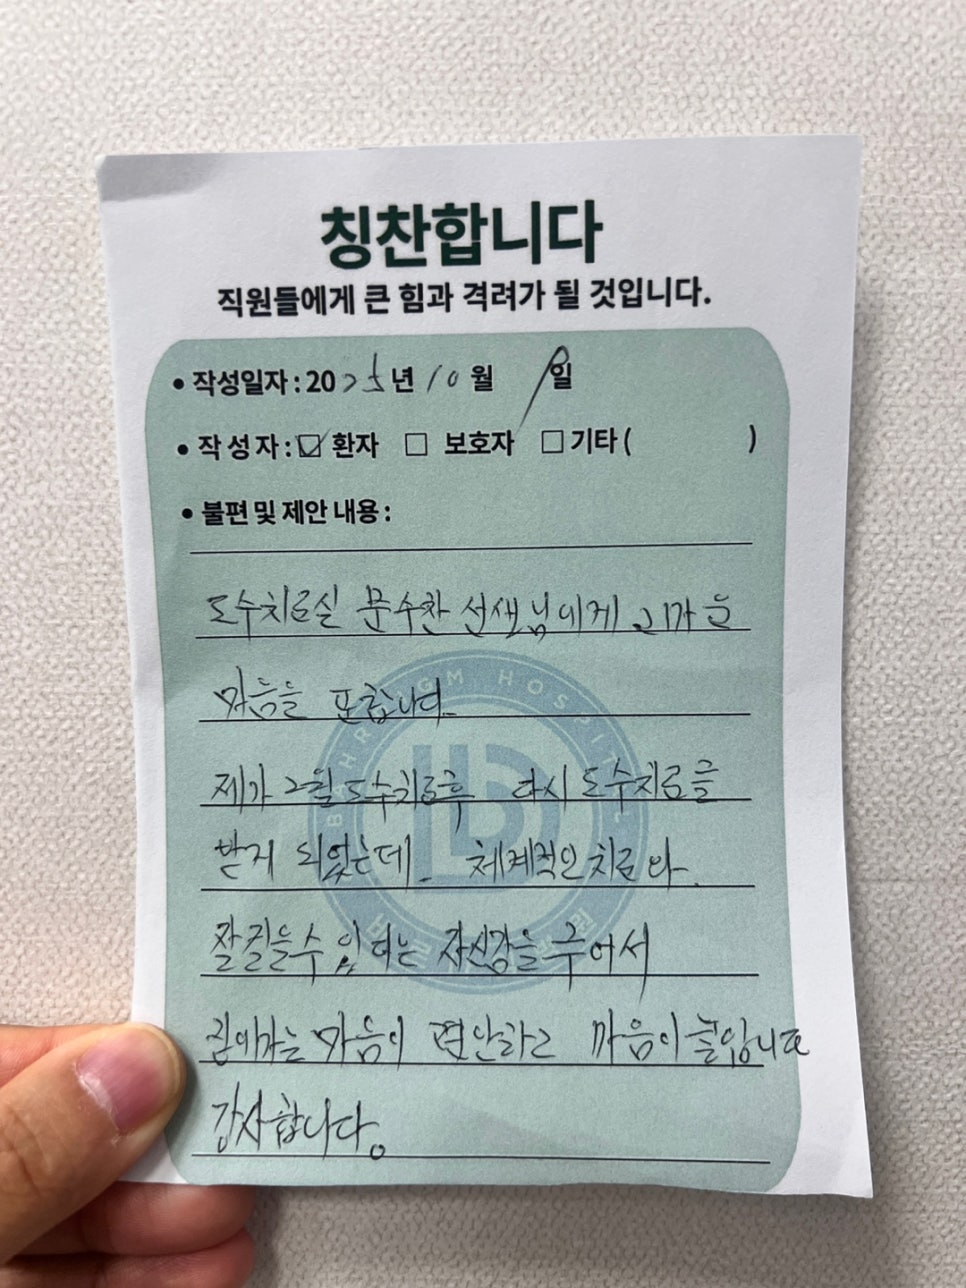 칭찬합니다
직원들에게 큰 힘과 격려가 될 것입니다.
• 작성일자 : 2025년 10월 일
• 작 성 자 : ☑ 환자 ☐ 보호자 ☐ 기타 ( )
• 불편 및 제안 내용 :
도수치료실 문수찬 선생님에게
마음을 표합니다.
제가 2월 도수치료후 다시 도수치료를
받게 되었는데 체계적인 치료와
잘 걸을수 있다는 자신감을 주어서
마음이 편안하고 마음이
감사합니다.
HOSPITAL